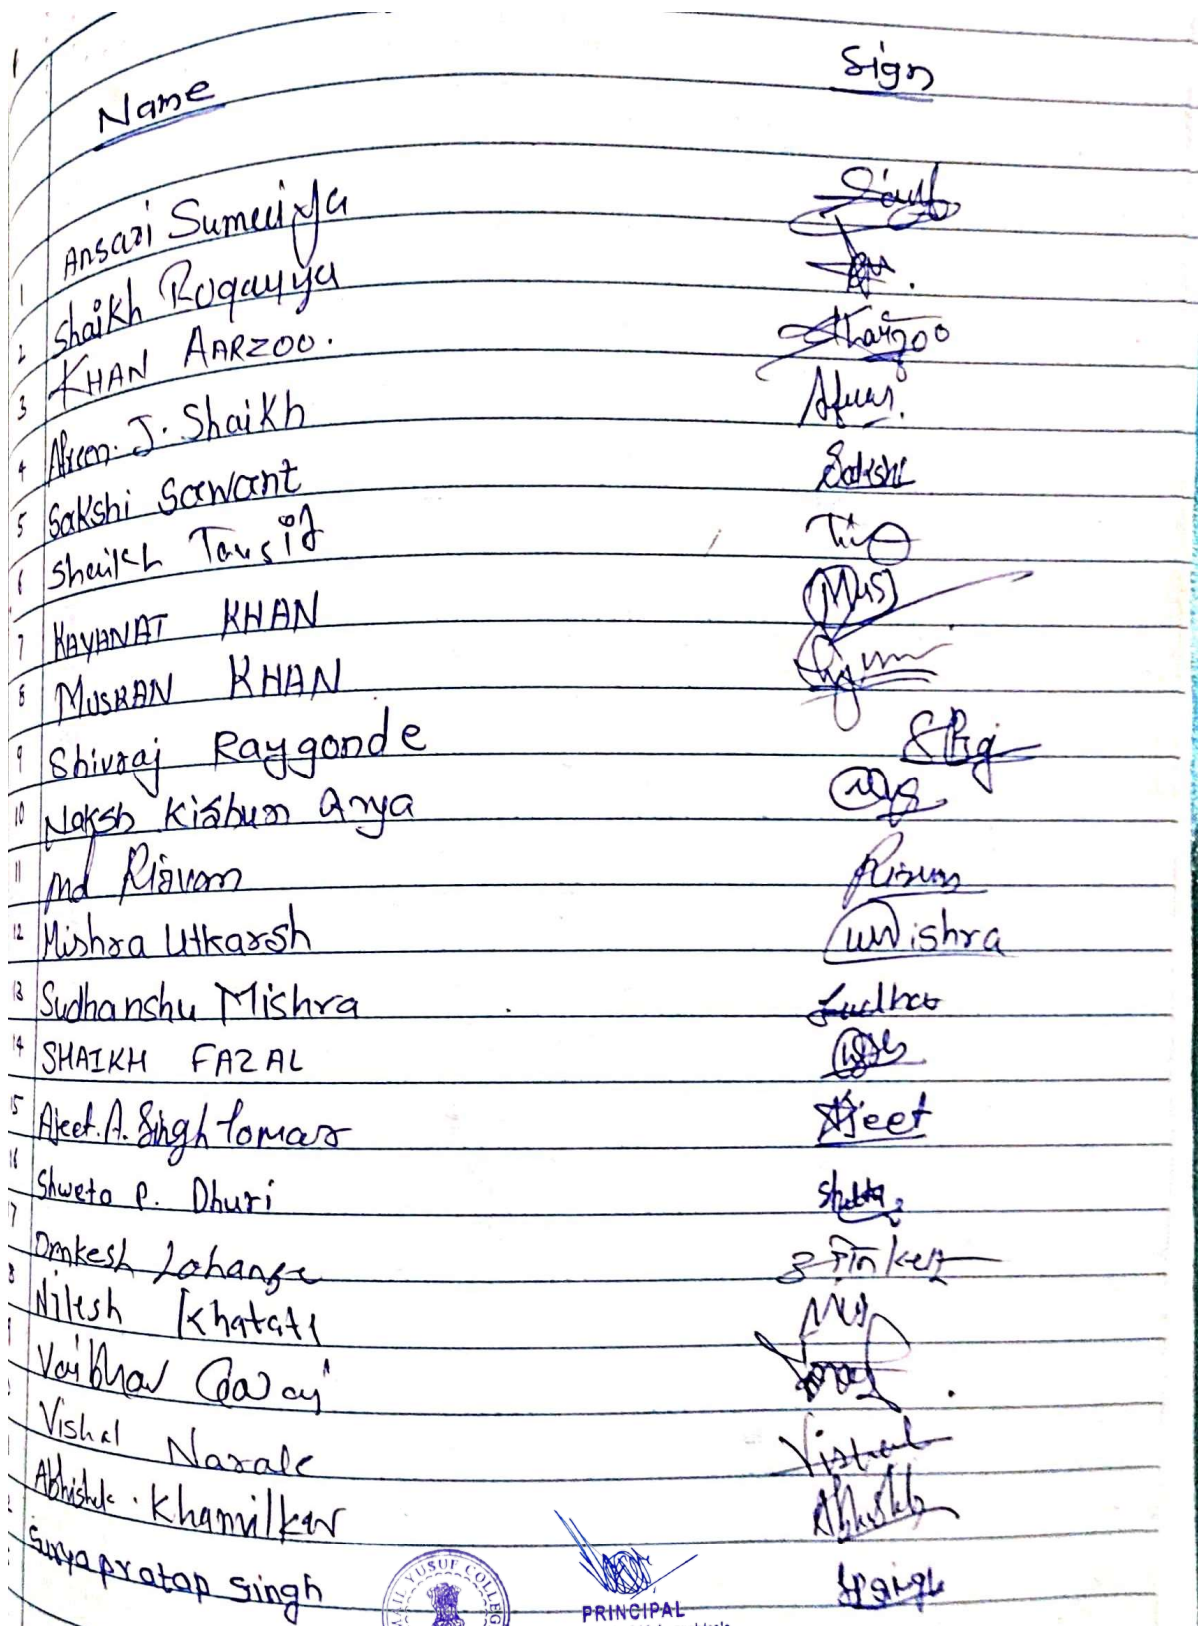 Name Sign
1 Ansari Sumaiya
2 Shaikh Ruqayya
3 KHAN AARZOO. Aarzoo
4 Afreen. J. Shaikh
5 Sakshi Sawant Sakshi
6 Shaikh Tausif
7 KAYANAT KHAN Mus
8 MUSKAN KHAN
9 Shivraj Raygonde
10 Naksh Kishun Arya
11 Md Rizvan Rizvan
12 Mishra Utkarsh UMishra
13 Sudhanshu Mishra Sudha
14 SHAIKH FAZAL
15 Ajeet. A. Singh Tomar Ajeet
16 Shweta P. Dhuri
17 Omkesh Lahange
18 Nilesh Khatate
Vaibhav Gavay
Vishal Narale Vishal
Abhishek. Khamilkar Abhishek
Suryapratap Singh
YUSUF COLLEGE
PRINCIPAL